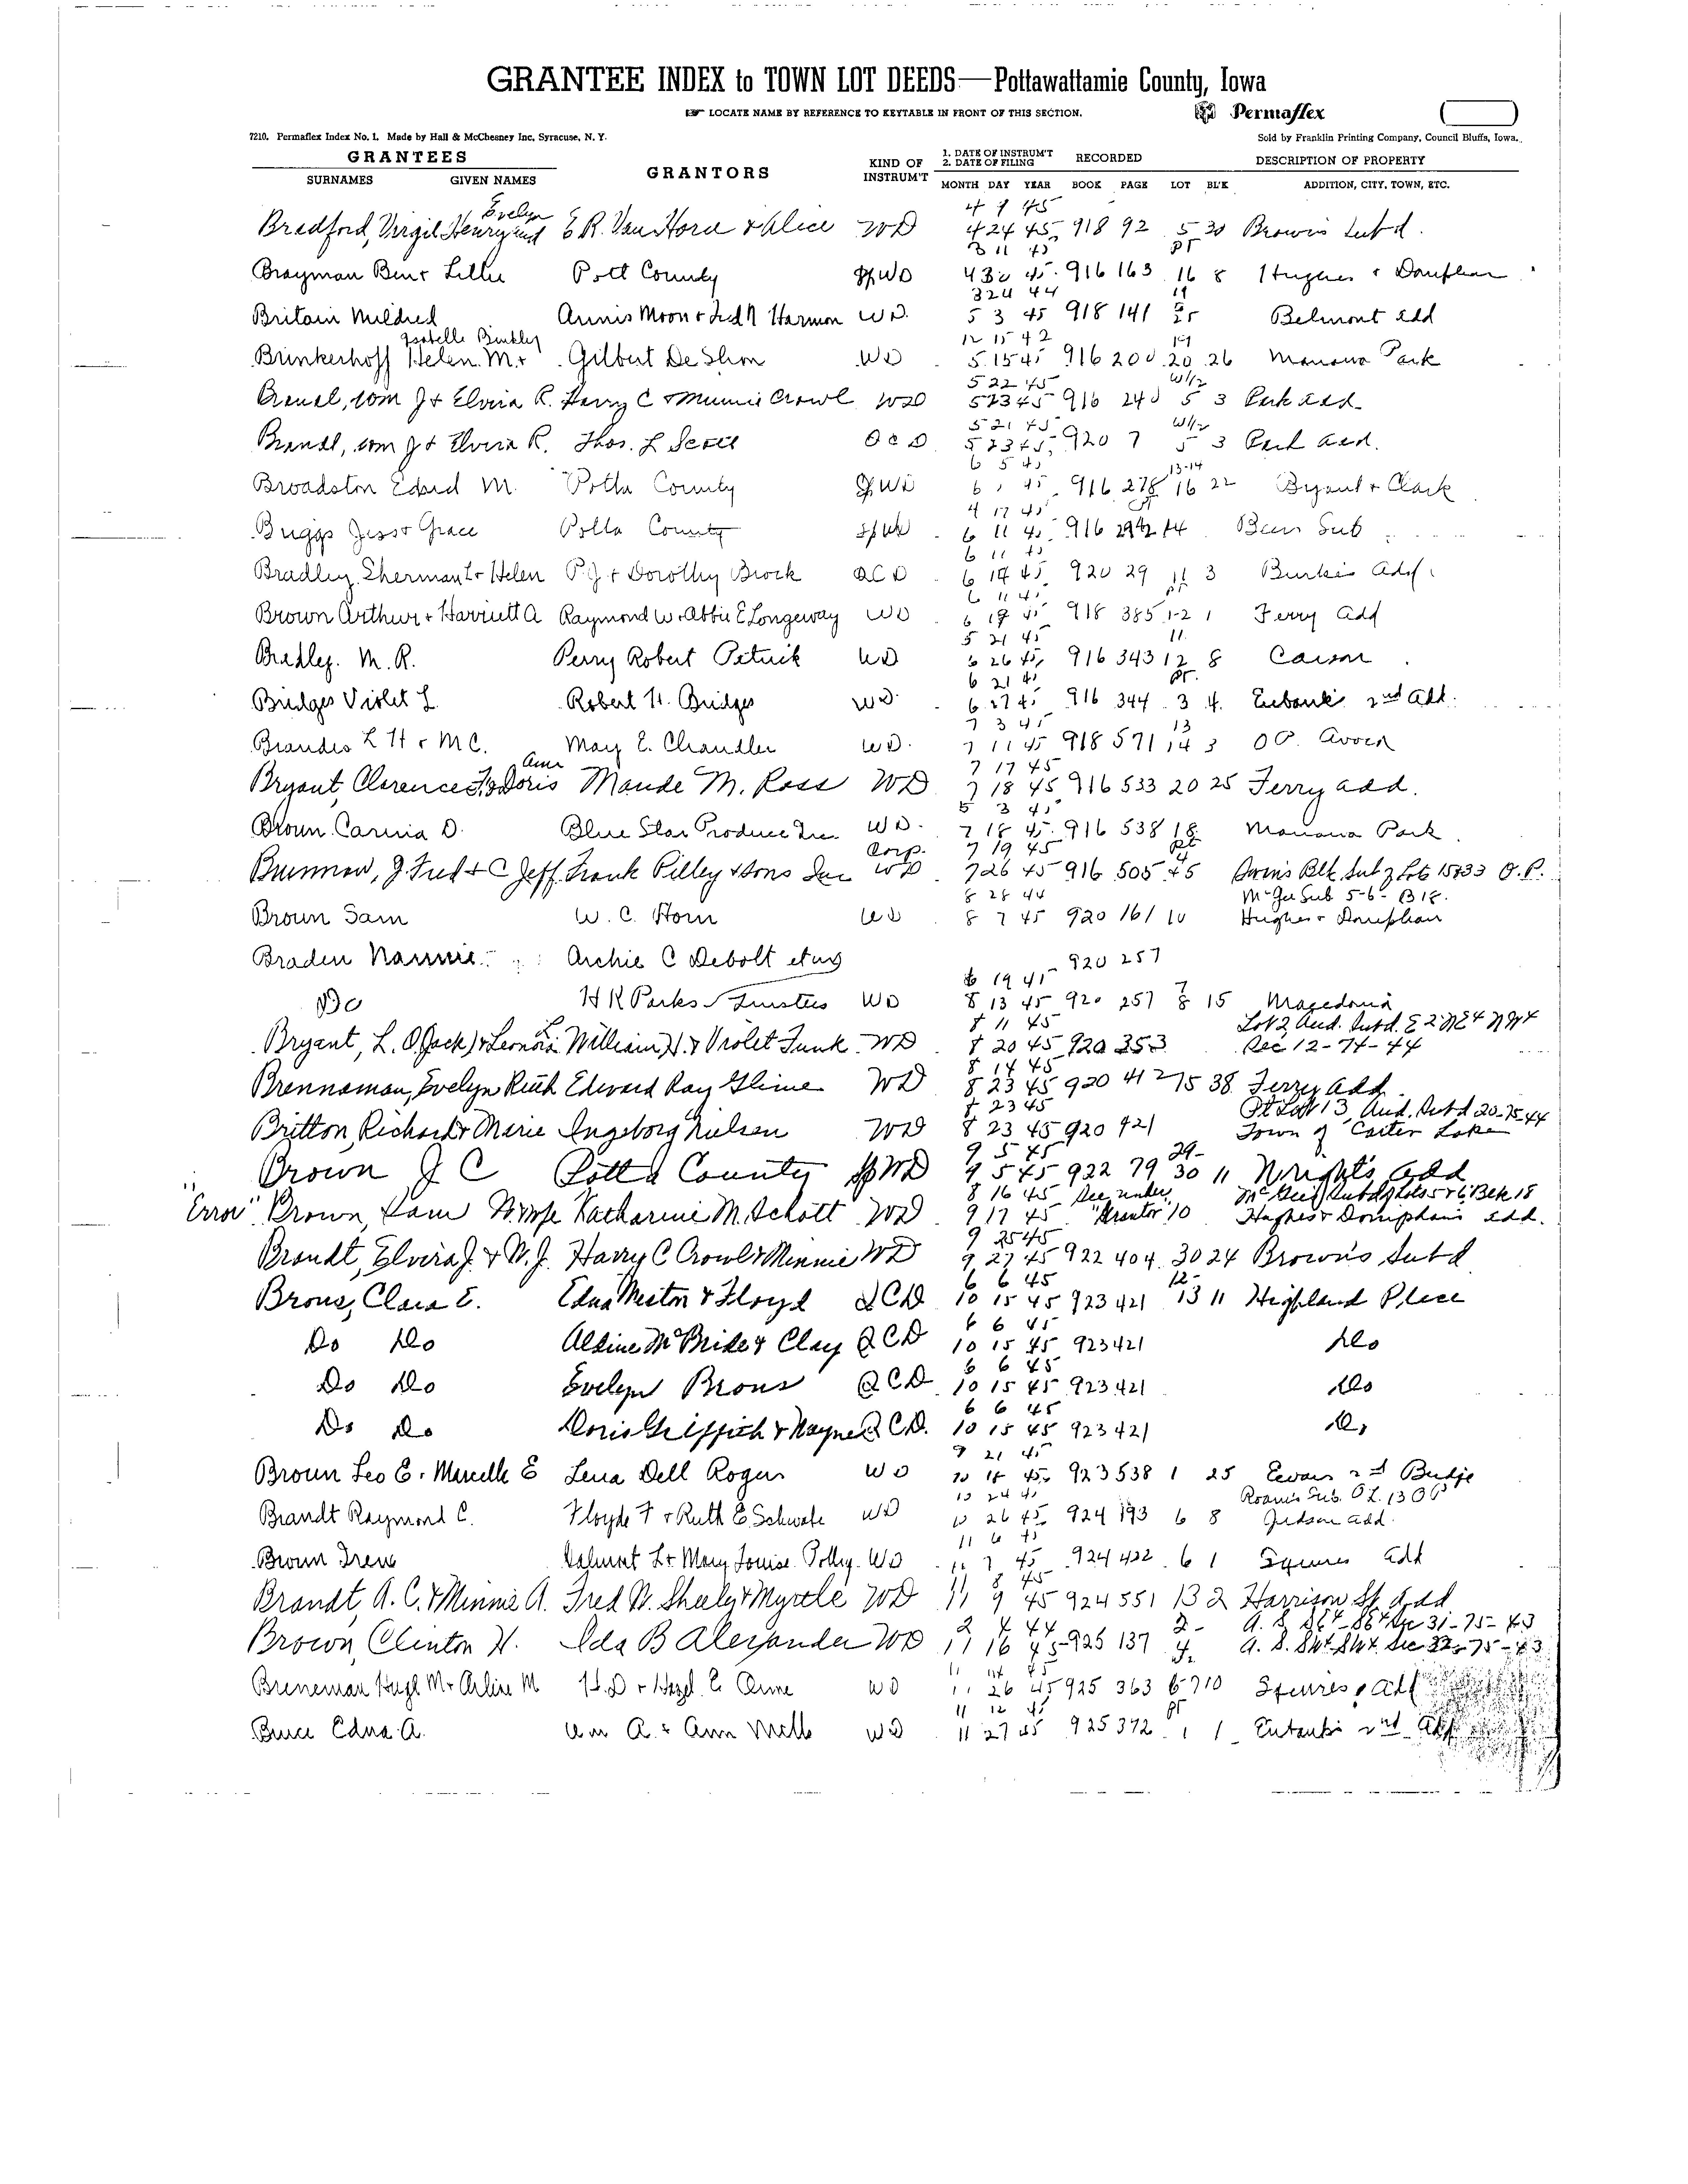 GRANTEE INDEX to TOWN LOT DEEDS—Pottawattamie County, Iowa
LOCATE NAME BY REFERENCE TO KEYTABLE IN FRONT OF THIS SECTION.
Permaflex
7210. Permaflex Index No. 1. Made by Hall & McChesney Inc, Syracuse, N. Y.
Sold by Franklin Printing Company, Council Bluffs, Iowa.
GRANTEES GRANTORS KIND OF INSTRUM'T 1. DATE OF INSTRUM'T 2. DATE OF FILING RECORDED DESCRIPTION OF PROPERTY
SURNAMES GIVEN NAMES MONTH DAY YEAR BOOK PAGE LOT BL'K ADDITION, CITY, TOWN, ETC.
Evelyn 4 9 45
Bradford, Virgil Henry and E R. Van Horn & Alice WD 4 24 45 918 92 5 30 Brown's Subd.
3 11 45 pt
Brayman Ben & Lillie Pott County Sp WD 4 30 45 916 163 16 8 Hughes & Doniphan
3 24 44
Britain Mildred Annis Moon & Harmon WD. 5 3 45 918 141 Belmont add
Isabelle Binkley 12 15 42 19
Brinkerhoff Helen M. & Gilbert De Shon WD 5 15 45 916 200 20 26 Manawa Park
5 22 45 W 1/2
J & Elvira R. Harry C & Minnie Crowl WD 5 23 45 916 240 5 3 Park add
5 21 45 W 1/2
J & Elvira R. Thos. L QCD 5 23 45 920 7 5 3 Park add.
6 5 45 13-14
Broadston M. Potta County Sp WD 6 45 916 278 16 22 Bryant & Clark
4 17 45
Briggs Jess & Grace Potta County Sp WD 6 11 45 916 Sub
6 11 45
Bradley Sherman L & Helen P. J & Dorothy Brock QCD 6 14 45 920 29 11 3 Add
6 11 45 pt
Brown Arthur & Harriett A Raymond W & Abbie E Longeway WD 6 19 45 918 385 1-2 1 Ferry add
5 21 45 11
Bradley. M. R. Perry Robert Petrick WD 6 26 45 916 343 12 8 Carson
6 21 45 pt.
Bridges Violet L. Robert H. Bridges WD 6 27 45 916 344 3 4 Eubank's 2nd Add.
7 3 45 13
Brandes L H & M C. May E. Chandler WD. 7 11 45 918 571 14 3 O P. Avoca
Ann 7 17 45
Bryant, Clarence F. & Doris Maude M. Ross WD 7 18 45 916 533 20 25 Ferry add.
5 3 45
Brown Carina D. Blue Star Produce Inc. WD. 7 18 45 916 538 18 Manawa Park
Corp. 7 19 45 pt 4
J. Fred & C Jeff Frank Pilley & Sons Inc WD 7 26 45 916 505 45 Blk. Sub O. P.
8 28 44 McGee Sub 5-6- B 18.
Brown Sam W. C. Horn WD 8 7 45 920 161 10 Hughes & Doniphan
Braden Nannie Archie C Debolt etux 920 257
6 19 45 7
Do H R Parks Trustees WD 8 13 45 920 257 8 15 Macedonia
8 11 45 Lot 2 Aud. Subd. E2 NE4 NW4
Bryant, L. O (Jack) & Leonora L William H. & Violet Funk WD 8 20 45 920 353 Sec 12-74-44
8 14 45
Brenneman, Evelyn Ruth Edward Ray Glime WD 8 23 45 920 412 15 38 Ferry add
8 23 45 Pt Lot 13 Aud. Subd 20-75-44
Britton, Richard & Marie Ingeborg Nielsen WD 8 23 45 920 421 Town of Carter Lake
9 5 45 29-
Brown J C Potta County Sp WD 9 5 45 922 79 30 11 Wright's add
8 16 45 See under McGee Subd of Lots 5 & 6 Blk 18
"Error" Brown, Sam Katharine M. Schott WD 9 17 45 "Grantor" 10 Hughes & Doniphan's add.
9 25 45
Brandt, Elvira J. & W. J. Harry C Crowl & Minnie WD 9 27 45 922 404 30 24 Brown's Subd
6 6 45 12-
Brous, Clara E. Edna Meston & Floyd QCD 10 15 45 923 421 13 11 Highland Place
6 6 45
Do Do Aldine McBride & Clay QCD 10 15 45 923 421 Do
6 6 45
Do Do Evelyn Brous QCD 10 15 45 923 421 Do
6 6 45
Do Do Doris Griffith & Wayne QCD. 10 15 45 923 421 Do
9 21 45
Brown Leo E. & Marcelle E Lena Dell Rogers WD 10 18 45 923 538 1 25 Evans 2nd Bridge
10 24 45 Sub. O L. 13 O P
Brandt Raymond C. Floyde F & Ruth E Schwabe WD 10 26 45 924 193 6 8 Judson add.
11 6 45
Brown Irene L & Mary Louise WD 11 7 45 924 422 6 1 Squires add
8 45
Brandt, A. C. & Minnie A. Fred W. Sheely & Myrtle WD 11 9 45 924 551 13 2 Harrison St add
2 4 44 2- Sec 31-75-43
Brown, Clinton H. Ida B Alexander WD 11 16 45 925 137 4
11 45
Breneman Hugh M & Arline M H. D & Hazel E WD 11 26 45 925 363 6-7 10 Squires add
11 12 45 pt
Bruce Edna A. Wm A. & Ann Mills WD 11 27 45 925 372 1 1 Eubanks 2nd add